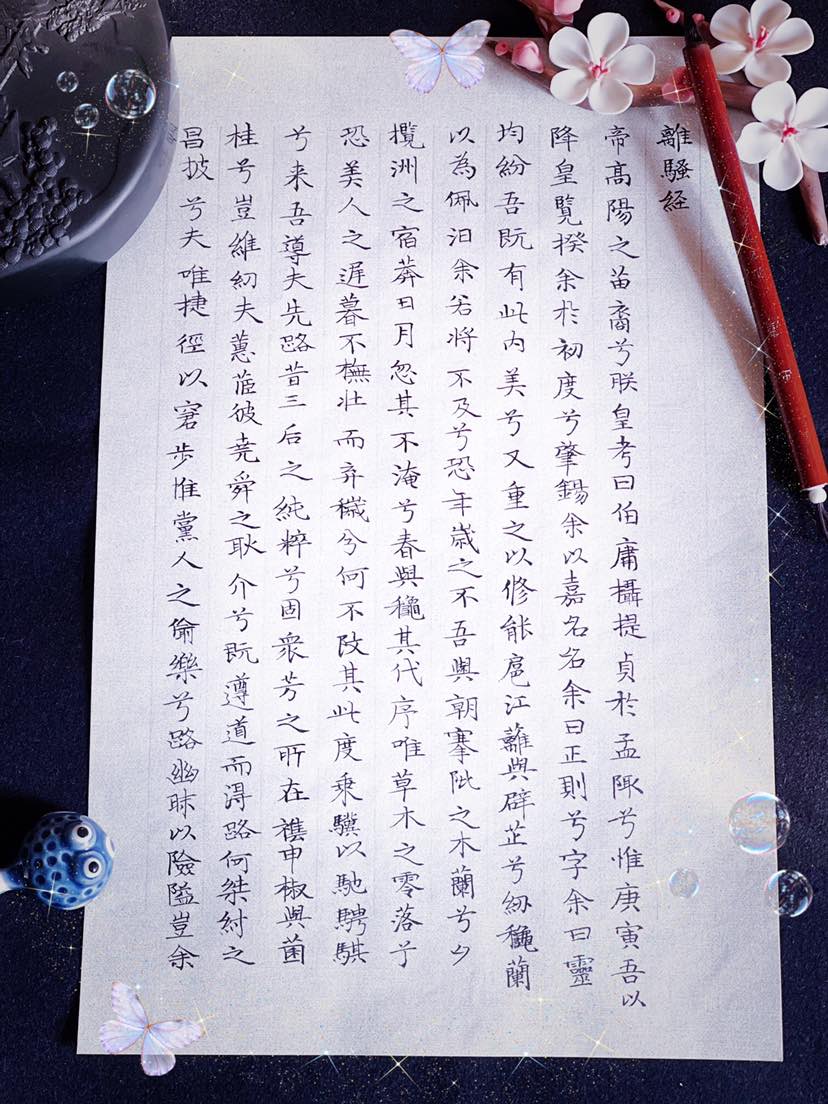 離騷経
帝髙陽之苗裔兮朕皇考曰伯庸攝提貞於孟陬兮惟庚寅吾以
降皇覽揆余於初度兮肇錫余以嘉名名余曰正則兮字余曰靈
均紛吾既有此内美兮又重之以脩能扈江離與辟芷兮紉龝蘭
以為佩汩余若将不及兮恐年歲之不吾與朝搴阰之木蘭兮夕
攬洲之宿莽日月忽其不淹兮春與龝其代序唯草木之零落兮
恐美人之遲暮不撫壯而弃穢兮何不改其此度乗驥以馳騁騏
兮来吾導夫先路昔三后之純粹兮固衆芳之所在雜申椒與菌
桂兮豈維紉夫蕙茝彼堯舜之耿介兮既遵道而淂路何桀紂之
昌披兮夫唯捷徑以窘步惟黨人之偷樂兮路幽昧以險隘豈余